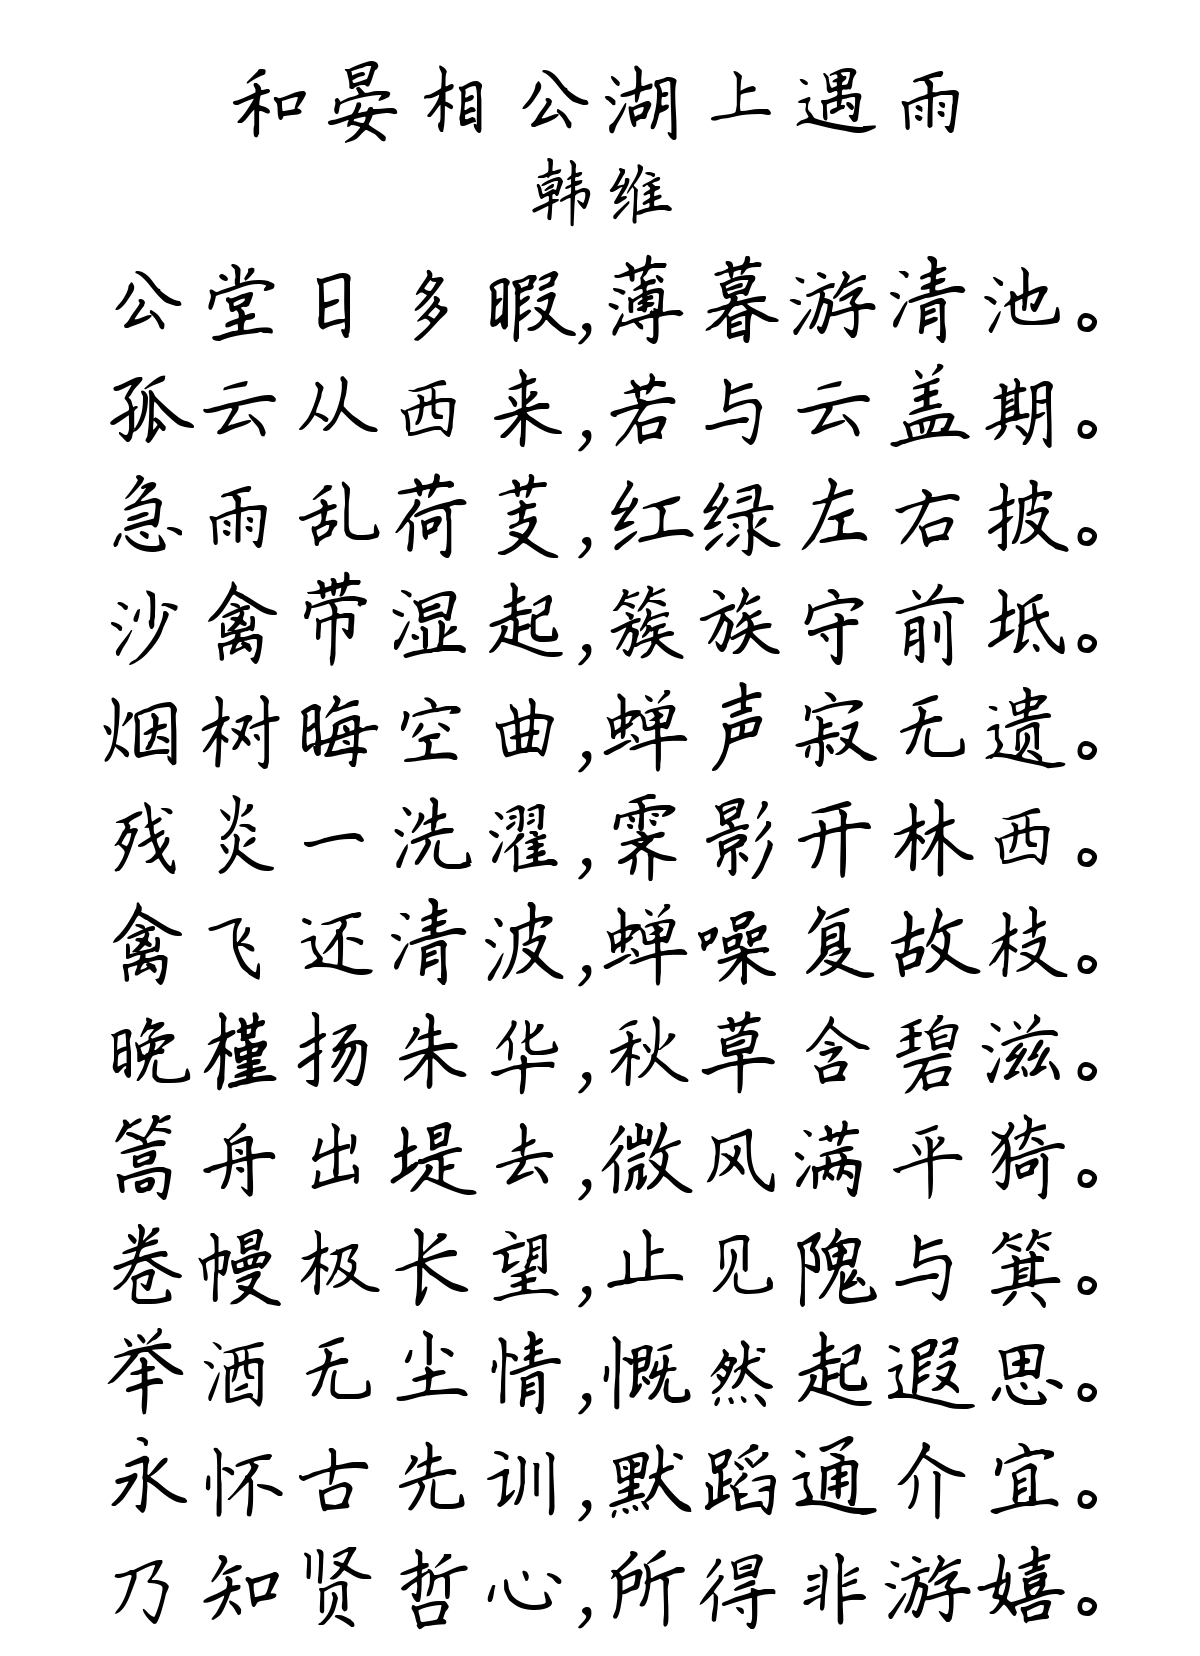 和晏相公湖上遇雨
韩维
公堂日多暇,薄暮游清池。
孤云从西来,若与云盖期。
急雨乱荷芰,红绿左右披。
沙禽带湿起,簇族守前坻。
烟树晦空曲,蝉声寂无遗。
残炎一洗濯,霁影开林西。
禽飞还清波,蝉噪复故枝。
晚槿扬朱华,秋草含碧滋。
篙舟出堤去,微风满平猗。
卷幔极长望,止见隗与箕。
举酒无尘情,慨然起遐思。
永怀古先训,默蹈通介宜。
乃知贤哲心,所得非游嬉。